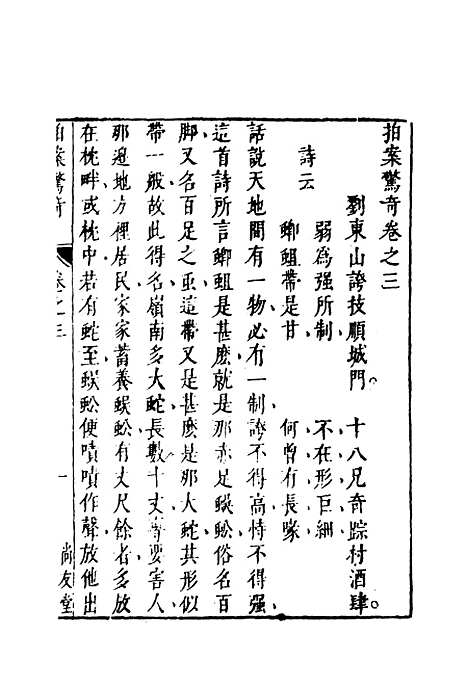 拍案驚奇卷之三
劉東山誇技順城門 十八兄奇踪村酒肆
詩云
弱爲强所制 不在形巨細
蝍蛆帶是甘 何曾有長喙
話說天地間有一物必有一制誇不得高恃不得强
這首詩所言蝍蛆是甚麽就是那赤足蜈蚣俗名百
脚又名百足之虫這帶又是甚麽是那大蛇其形似
帶一般故此得名嶺南多大蛇長數十丈專要害人
那邊地方裡居民家家蓄養蜈蚣有丈尺餘者多放
在枕畔或枕中若有蛇至蜈蚣便嘖嘖作聲放他出
拍案驚奇 卷之三 一 尚友堂